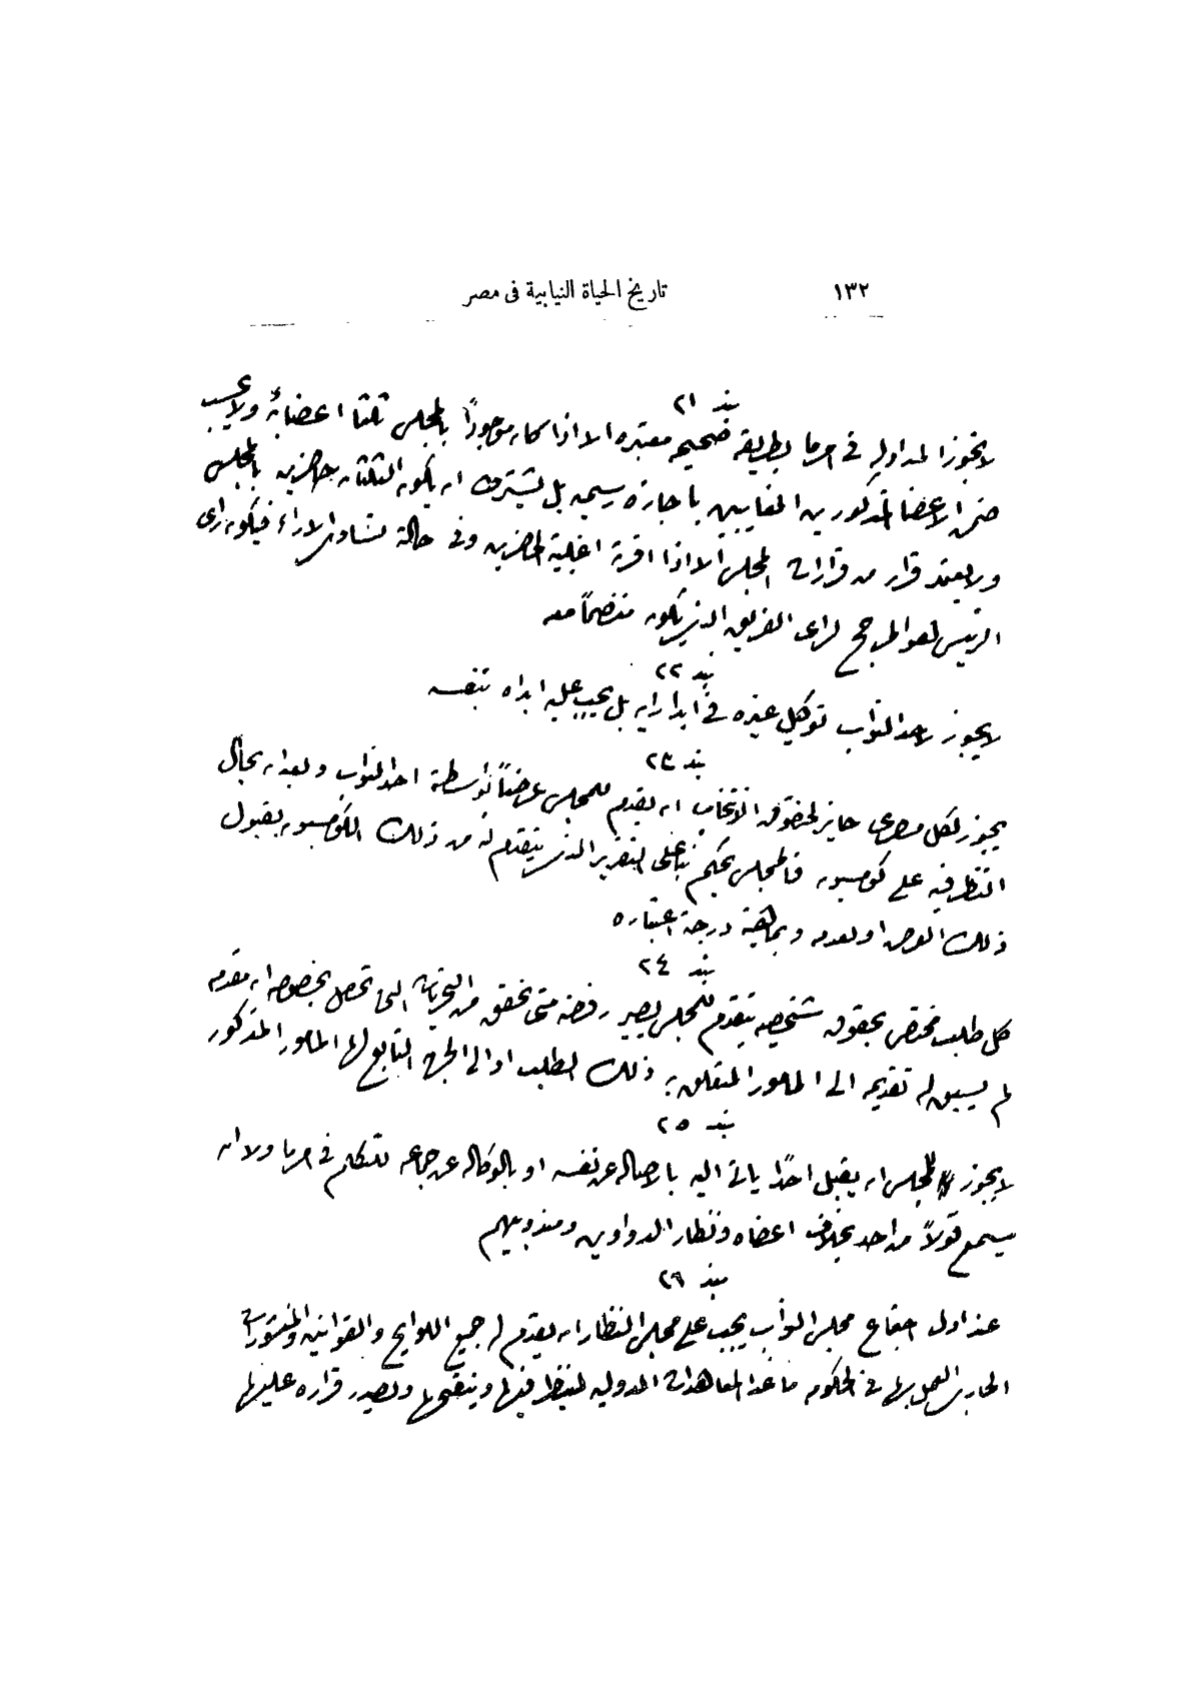 ١٣٢ تاريخ الحياة النيابية فى مصر
بند ٢١
لا تجوز المداوله فى امر ما بطريقه صحيحه معتبره الا اذا كان موجوداً بالمجلس ثلثا اعضائه ولا يحسب
ضمن الاعضا المذكورين الغايبين باجازه رسميه بل يشترط ان يكون الثلثان حاضرين بالمجلس
ولا يعتمد قرار من قرارات المجلس الا اذا اقرته اغلبية الحاضرين وفى حالة تساوى الاراء فيكون راى
الرئيس هو المرجح لراى الفريق الذى يكون منضماً معه
بند ٢٢
لا يجوز لاحد النواب توكيل غيره فى ابدا رايه بل يجب عليه ابداه بنفسه
بند ٢٣
يجوز لكل مصرى حايز لحقوق الانتخاب ان يقدم للمجلس عرضاً بواسطة احد النواب وبعد ان يحال
النظر فيه على كومسيون فالمجلس يحكم بنا على التقرير الذى يتقدم له من ذلك الكومسيون بقبول
ذلك العرض او بعدمه وبماهية درجة اعتباره
بند ٢٤
كل طلب مختص بحقوق شخصيه يتقدم للمجلس يصير رفضه متى تحقق من التحريات التى تحصل بخصوصه ان مقدمه
لم يسبق له تقديمه الى المامور المتعلق به ذلك الطلب او الى الجهة التابع لها المامور المذكور
بند ٢٥
لا يجوز للمجلس ان يقبل احداً ياتى اليه بالاصاله عن نفسه او بالوكاله عن جماعه للتكلم فى امر ما ولا ان
يسمع قولاً من احد بخلاف اعضاه ونظار الدواوين ومندوبيهم
بند ٢٦
عند اول اجتماع مجلس النواب يجب على مجلس النظار ان يقدم له جميع اللوايح والقوانين والمنشورات
الجارى العمل بها فى الحكومه ما عدا المعاهدات الدوليه لينظر فيها وينقحها ويصدر قراره عليها